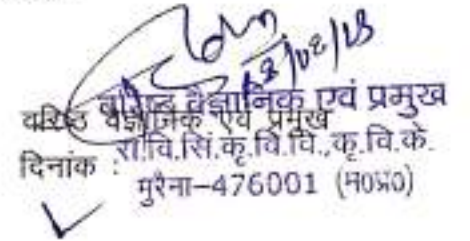 18/02/23
वरिष्ठ वैज्ञानिक एवं प्रमुख
वरिष्ठ वैज्ञानिक एवं प्रमुख
रा.वि.सिं.कृ.वि.वि.,कृ.वि.के.
दिनांक :
मुरैना-476001 (म0प्र0)